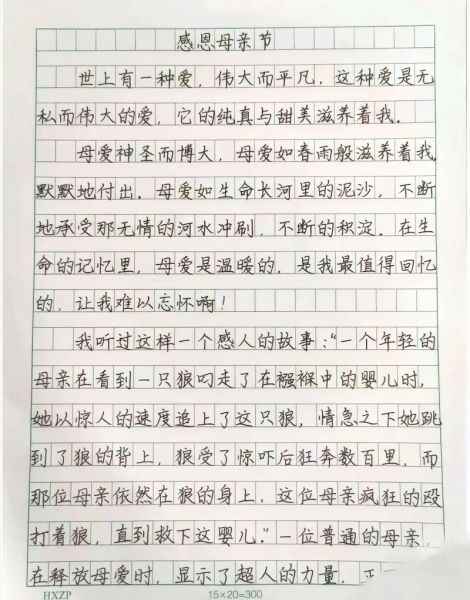 感恩母亲节
世上有一种爱，伟大而平凡，这种爱是无
私而伟大的爱，它的纯真与甜美滋养着我．
母爱神圣而博大，母爱如春雨般滋养着我，
默默地付出．母爱如生命长河里的泥沙，不断
地承受那无情的河水冲刷，不断的积淀．在生
命的记忆里，母爱是温暖的，是我最值得回忆
的，让我难以忘怀啊！
我听过这样一个感人的故事："一个年轻的
母亲在看到一只狼叼走了在襁褓中的婴儿时，
她以惊人的速度追上了这只狼，情急之下她跳
到了狼的背上，狼受了惊吓后狂奔数百里，而
那位母亲依然在狼的身上，这位母亲疯狂的殴
打着狼，直到救下这婴儿."一位普通的母亲，
在释放母爱时，显示了超人的力量，正
HXZP 15×20=300